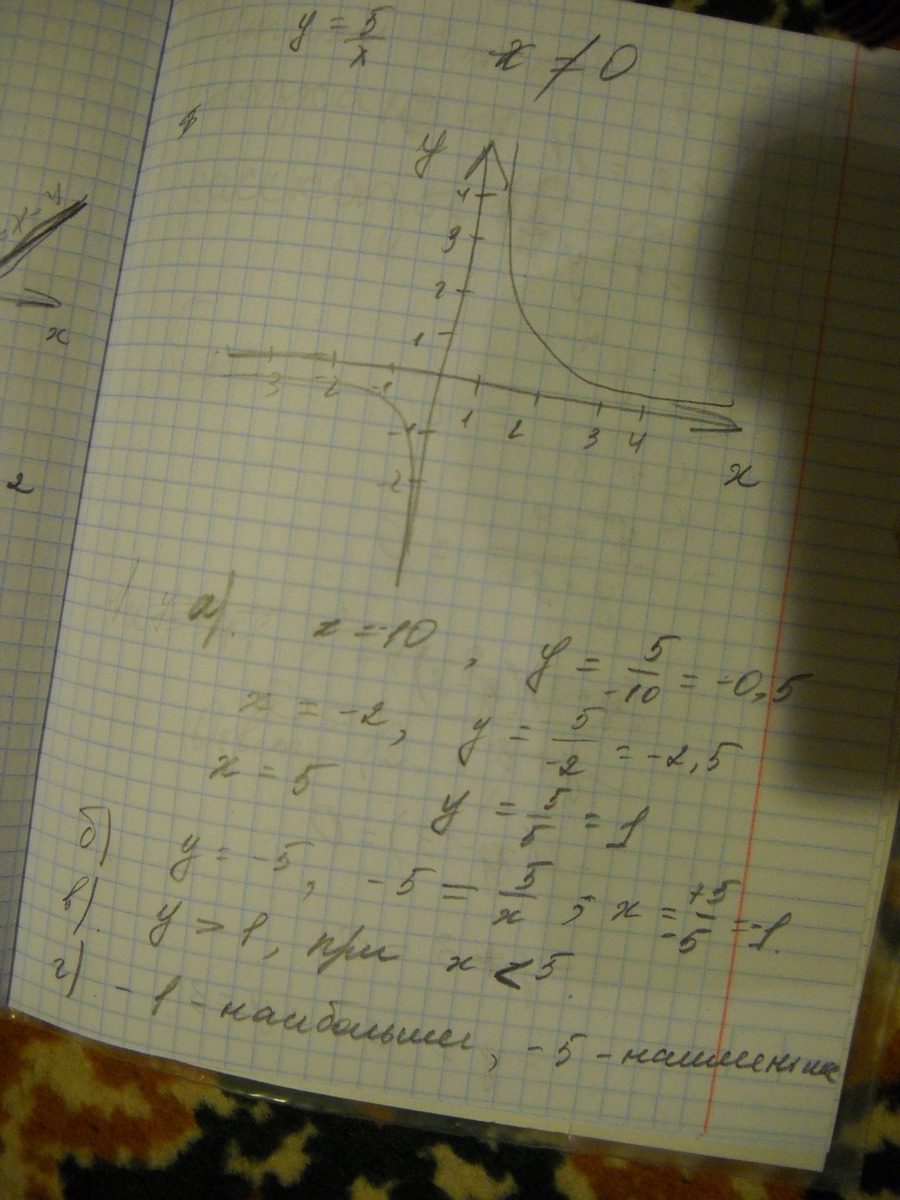 y = 5/x x ≠ 0
y
4
3
2
1
-3 -2 -1
1 2 3 4
-1
x
-2
x
2
а). x = -10, y = 5/-10 = -0,5
x = -2, y = 5/-2 = -2,5
x = 5 y = 5/5 = 1
б) y = -5, -5 = 5/x ; x = +5/-5 = -1.
в). y > 1, при x < 5.
г) -1 - наибольше, -5 -